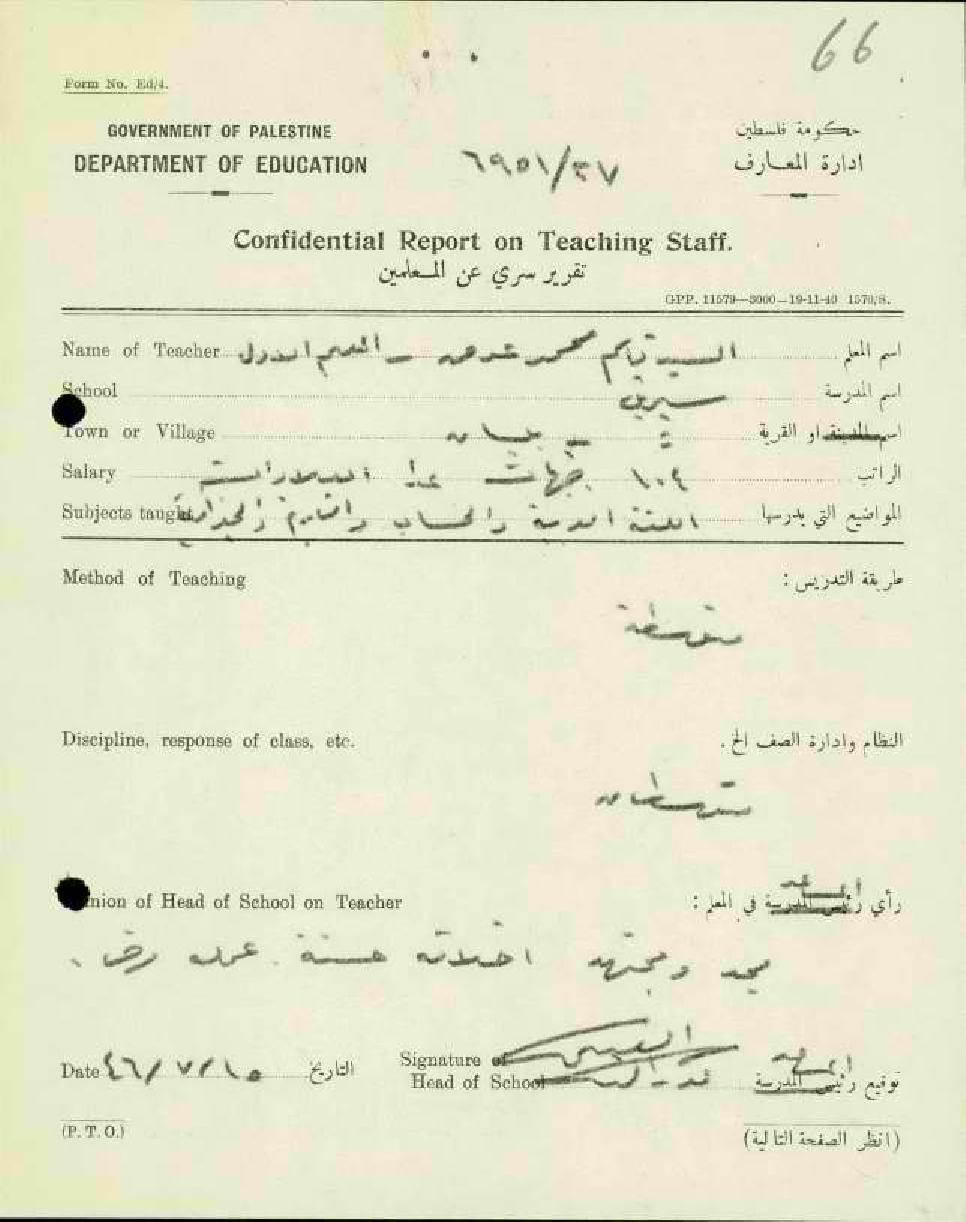 66
Form No. Ed/4.
GOVERNMENT OF PALESTINE
حكومة فلسطين
DEPARTMENT OF EDUCATION
ادارة المعارف
٦٩٥١/٣٧
Confidential Report on Teaching Staff.
تقرير سري عن المعلمين
GPP. 11579—3000—19-11-40 1570/S.
Name of Teacher السيد محمد اسم المعلم
School سيرين اسم المدرسة
Town or Village بيسان اسم المدينة او القرية
Salary الراتب
Subjects taught اللغة والحساب المواضيع التي يدرسها
Method of Teaching طريقة التدريس :
متوسطة
Discipline, response of class, etc. النظام وادارة الصف الخ .
متوسطان
Opinion of Head of School on Teacher رأي رئيس المدرسة في المعلم :
مجد ومجتهد اخلاقه حسنة . عمله مرض .
Date ٤٦/٧/١٥ التاريخ
Signature of Head of School توقيع رئيس المدرسة
(P. T. O.) (انظر الصفحة التالية)